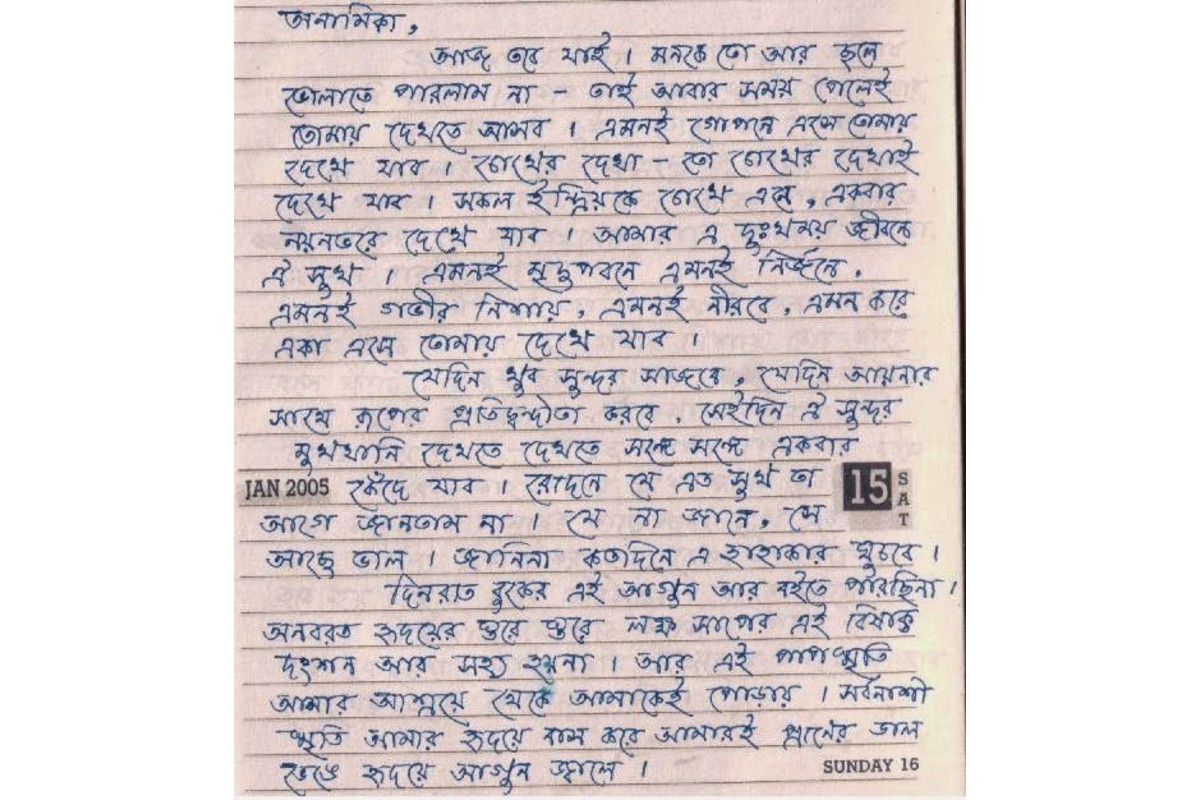 অনামিকা,
আজ তবে যাই । মনকে তো আর ছলে
ভোলাতে পারলাম না – তাই আবার সময় পেলেই
তোমায় দেখতে আসব । এমনই গোপনে এসে তোমায়
দেখে যাব । চোখের দেখা – তো চোখের দেখাই
দেখে যাব । সকল ইন্দ্রিয়কে চোখে এনে , একবার
নয়নভরে দেখে যাব । আমার এ দুঃখময় জীবনে
ঐ সুখ । এমনই মৃদুপবনে এমনই নির্জনে ,
এমনই গভীর নিশায় , এমনই নীরবে , এমন করে
একা এসে তোমায় দেখে যাব ।
যেদিন খুব সুন্দর সাজবে , যেদিন আয়নার
সাথে রূপের প্রতিদ্বন্দীতা করবে , সেইদিন ঐ সুন্দর
মুখখানি দেখতে দেখতে সঙ্গে সঙ্গে একবার
JAN 2005 কেঁদে যাব । রোদনে যে এত সুখ তা 15 SAT
আগে জানতাম না । যে না জানে , সে
আছে ভাল । জানিনা কতদিনে এ হাহাকার ঘুচবে ।
দিনরাত বুকের এই আগুন আর বইতে পারছিনা ।
অনবরত হৃদয়ের স্তরে স্তরে লক্ষ সাপের এই বিষাক্ত
দংশন আর সহ্য হয়না । আর এই পাপস্মৃতি
আমার আশ্রয়ে থেকে আমাকেই পোড়ায় । সর্বনাশী
স্মৃতি আমার হৃদয়ে বাস করে আমারই প্রানের ডাল
ভেঙে হৃদয়ে আগুন জ্বালে ।
SUNDAY 16